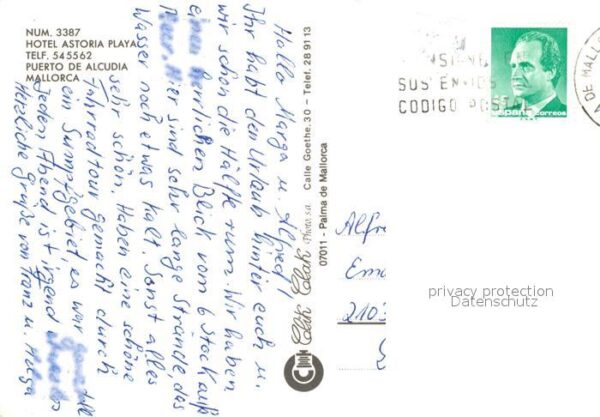 NUM. 3387
HOTEL ASTORIA PLAYA
TELF. 545562
PUERTO DE ALCUDIA
MALLORCA
Hallo Marga u. Alfred!
Ihr habt den Urlaub hinter euch u.
wir schon die Hälfte rum. Wir haben
einen herrlichen Blick vom 6 Stock aufs
Meer. Hier sind sehr lange Strände, das
Wasser noch etwas kalt. Sonst alles
sehr schön. Haben eine schöne
Fahrradtour gemacht durch
ein Sumpfgebiet, es war toll
Jeden Abend ist irgend
Herzliche Grüße von Franz u. Helga
Clik Clak Photo, s.a. Calle Goethe, 30 - Telef. 28 91 13
07011 - Palma de Mallorca
SUS ENVIOS
CODIGO POSTAL
DE MALLO
España correos
Alfre
2103
privacy protection
Datenschutz